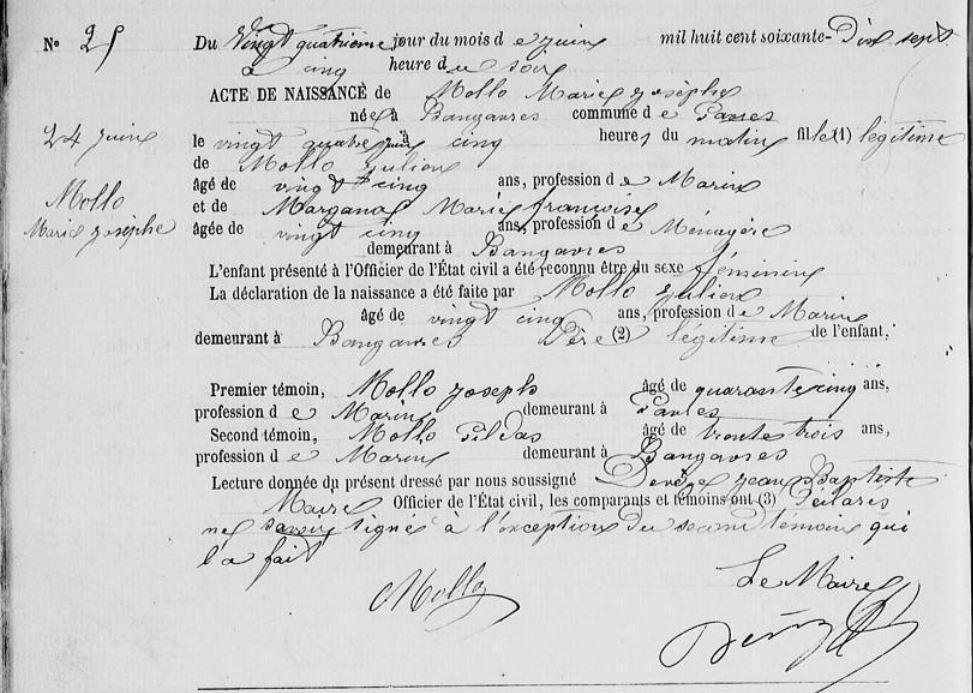 N° 25
Du Vingt quatrième jour du mois de juin mil huit cent soixante-Dix sept
à cinq heure du soir
ACTE DE NAISSANCE de Mollo Marie josèphe
née à Bangavres commune de Gavres
24 juin
le vingt quatre juin à cinq heures du matin fille (1) légitime
de Mollo julien
âgé de vingt cinq ans, profession de Marin
Mollo
et de Marie françoise
Marie josèphe
âgée de vingt cinq ans, profession de Ménagère
demeurant à Bangavres
L'enfant présenté à l'Officier de l'État civil a été reconnu être du sexe féminin
La déclaration de la naissance a été faite par Mollo julien
âgé de vingt cinq ans, profession de Marin
demeurant à Bangavres Père (2) légitime de l'enfant,
Premier témoin, Mollo joseph âgé de quarante cinq ans,
profession de Marin demeurant à
Second témoin, Mollo Gildas âgé de trente trois ans,
profession de Marin demeurant à Bangavres
Lecture donnée du présent dressé par nous soussigné jean Baptiste
Maire Officier de l'État civil, les comparants et témoins ont (3) Déclarés
ne savoir signé à l'exception du second témoin qui
l'a fait
Mollo
Le Maire